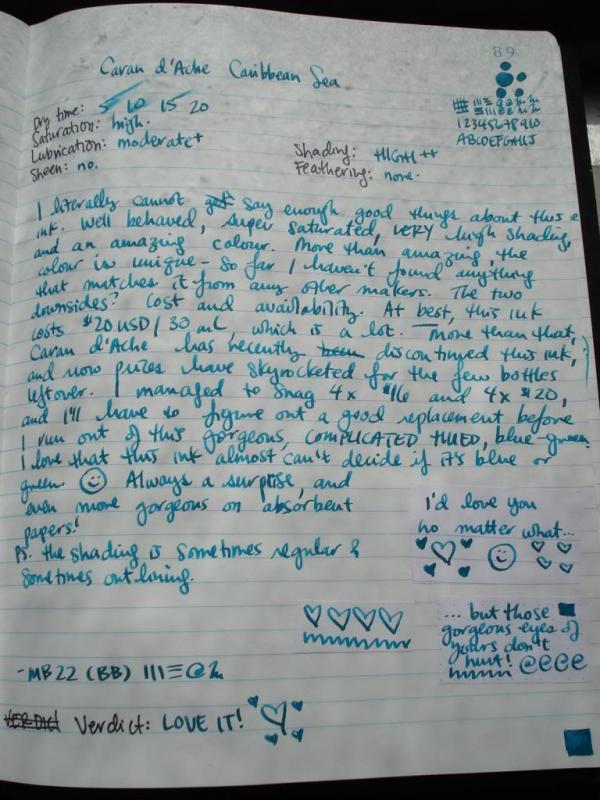 89
Caran d'Ache Caribbean Sea
12345678910
ABCDEFGHIJ
Dry time: 5 10 15 20
Saturation: high.
Lubrication: moderate+
Sheen: no.
Shading: HIGH ++
Feathering: none.
I literally cannot say enough good things about this
ink. Well behaved, super saturated, VERY high shading,
and an amazing colour. More than amazing, the
colour is unique - so far I haven't found anything
that matches it from any other makers. The two
downsides? Cost and availability. At best, this ink
costs $20 USD / 30 mL, which is a lot. More than that,
Caran d'Ache has recently discontinued this ink,
and now prizes have skyrocketed for the few bottles
leftover. I managed to snag 4x $16 and 4x $20,
and I'll have to figure out a good replacement before
I run out of this gorgeous, COMPLICATED HUED, blue-green.
I love that this ink almost can't decide if it's blue or
green. ☺ Always a surprise, and
even more gorgeous on absorbent
papers!
PS. the shading is sometimes regular &
sometimes outlining.
I'd love you
no matter what...
... but those
gorgeous eyes of
yours don't
hurt! @@@@
-MB22 (BB)
VERDICT Verdict: LOVE IT!